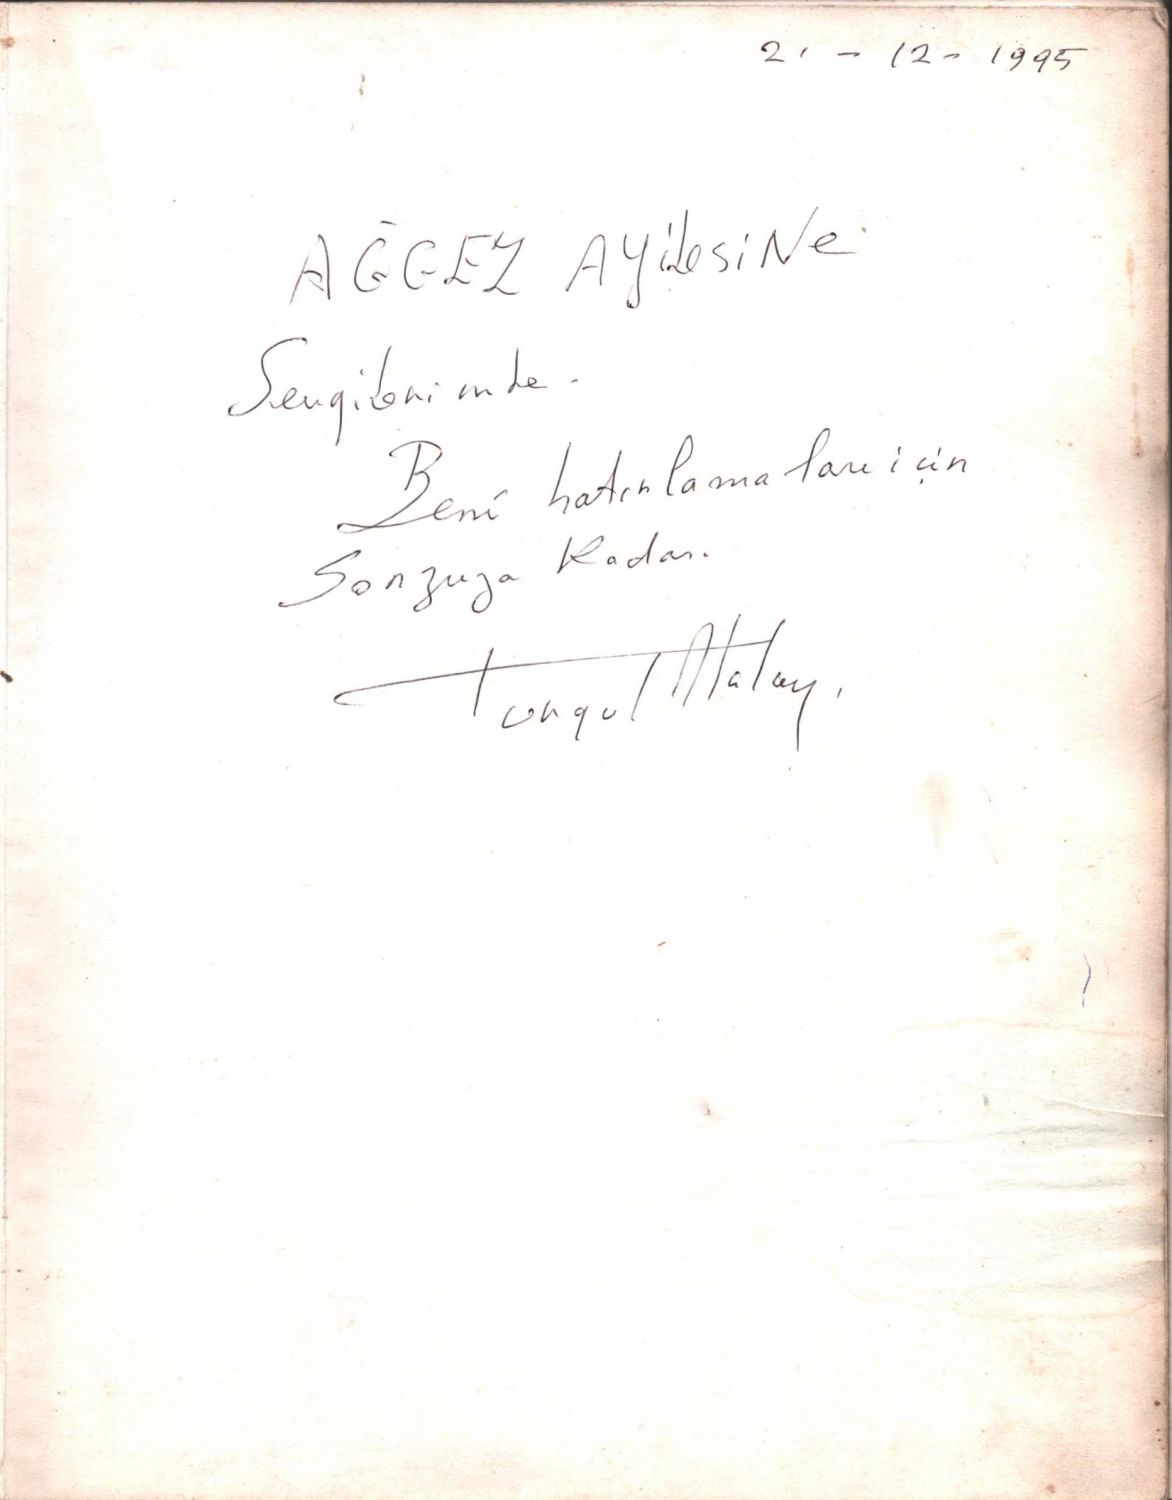 21 - 12 - 1995
AĞGEZ AYilesiNe
Sevgilerimle.
Beni hatırlamaları için
Sonzuza Kadar.
Tonguç Atalay.